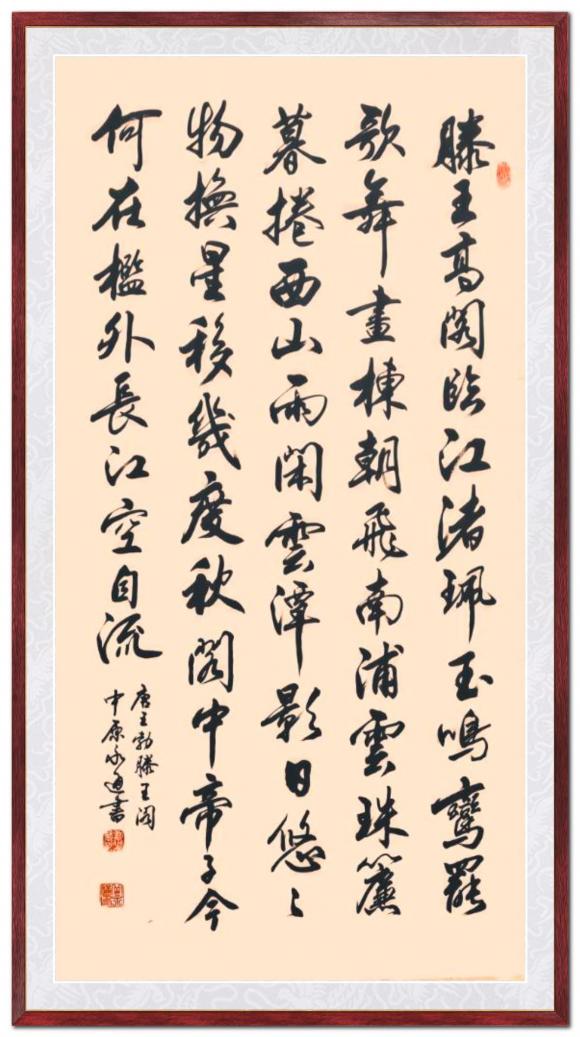 滕王高閣臨江渚珮玉鳴鸞罷
歌舞畫棟朝飛南浦雲珠簾
暮捲西山雨閑雲潭影日悠々
物換星移幾度秋閣中帝子今
何在檻外長江空自流
唐王勃滕王閣
中原永通書